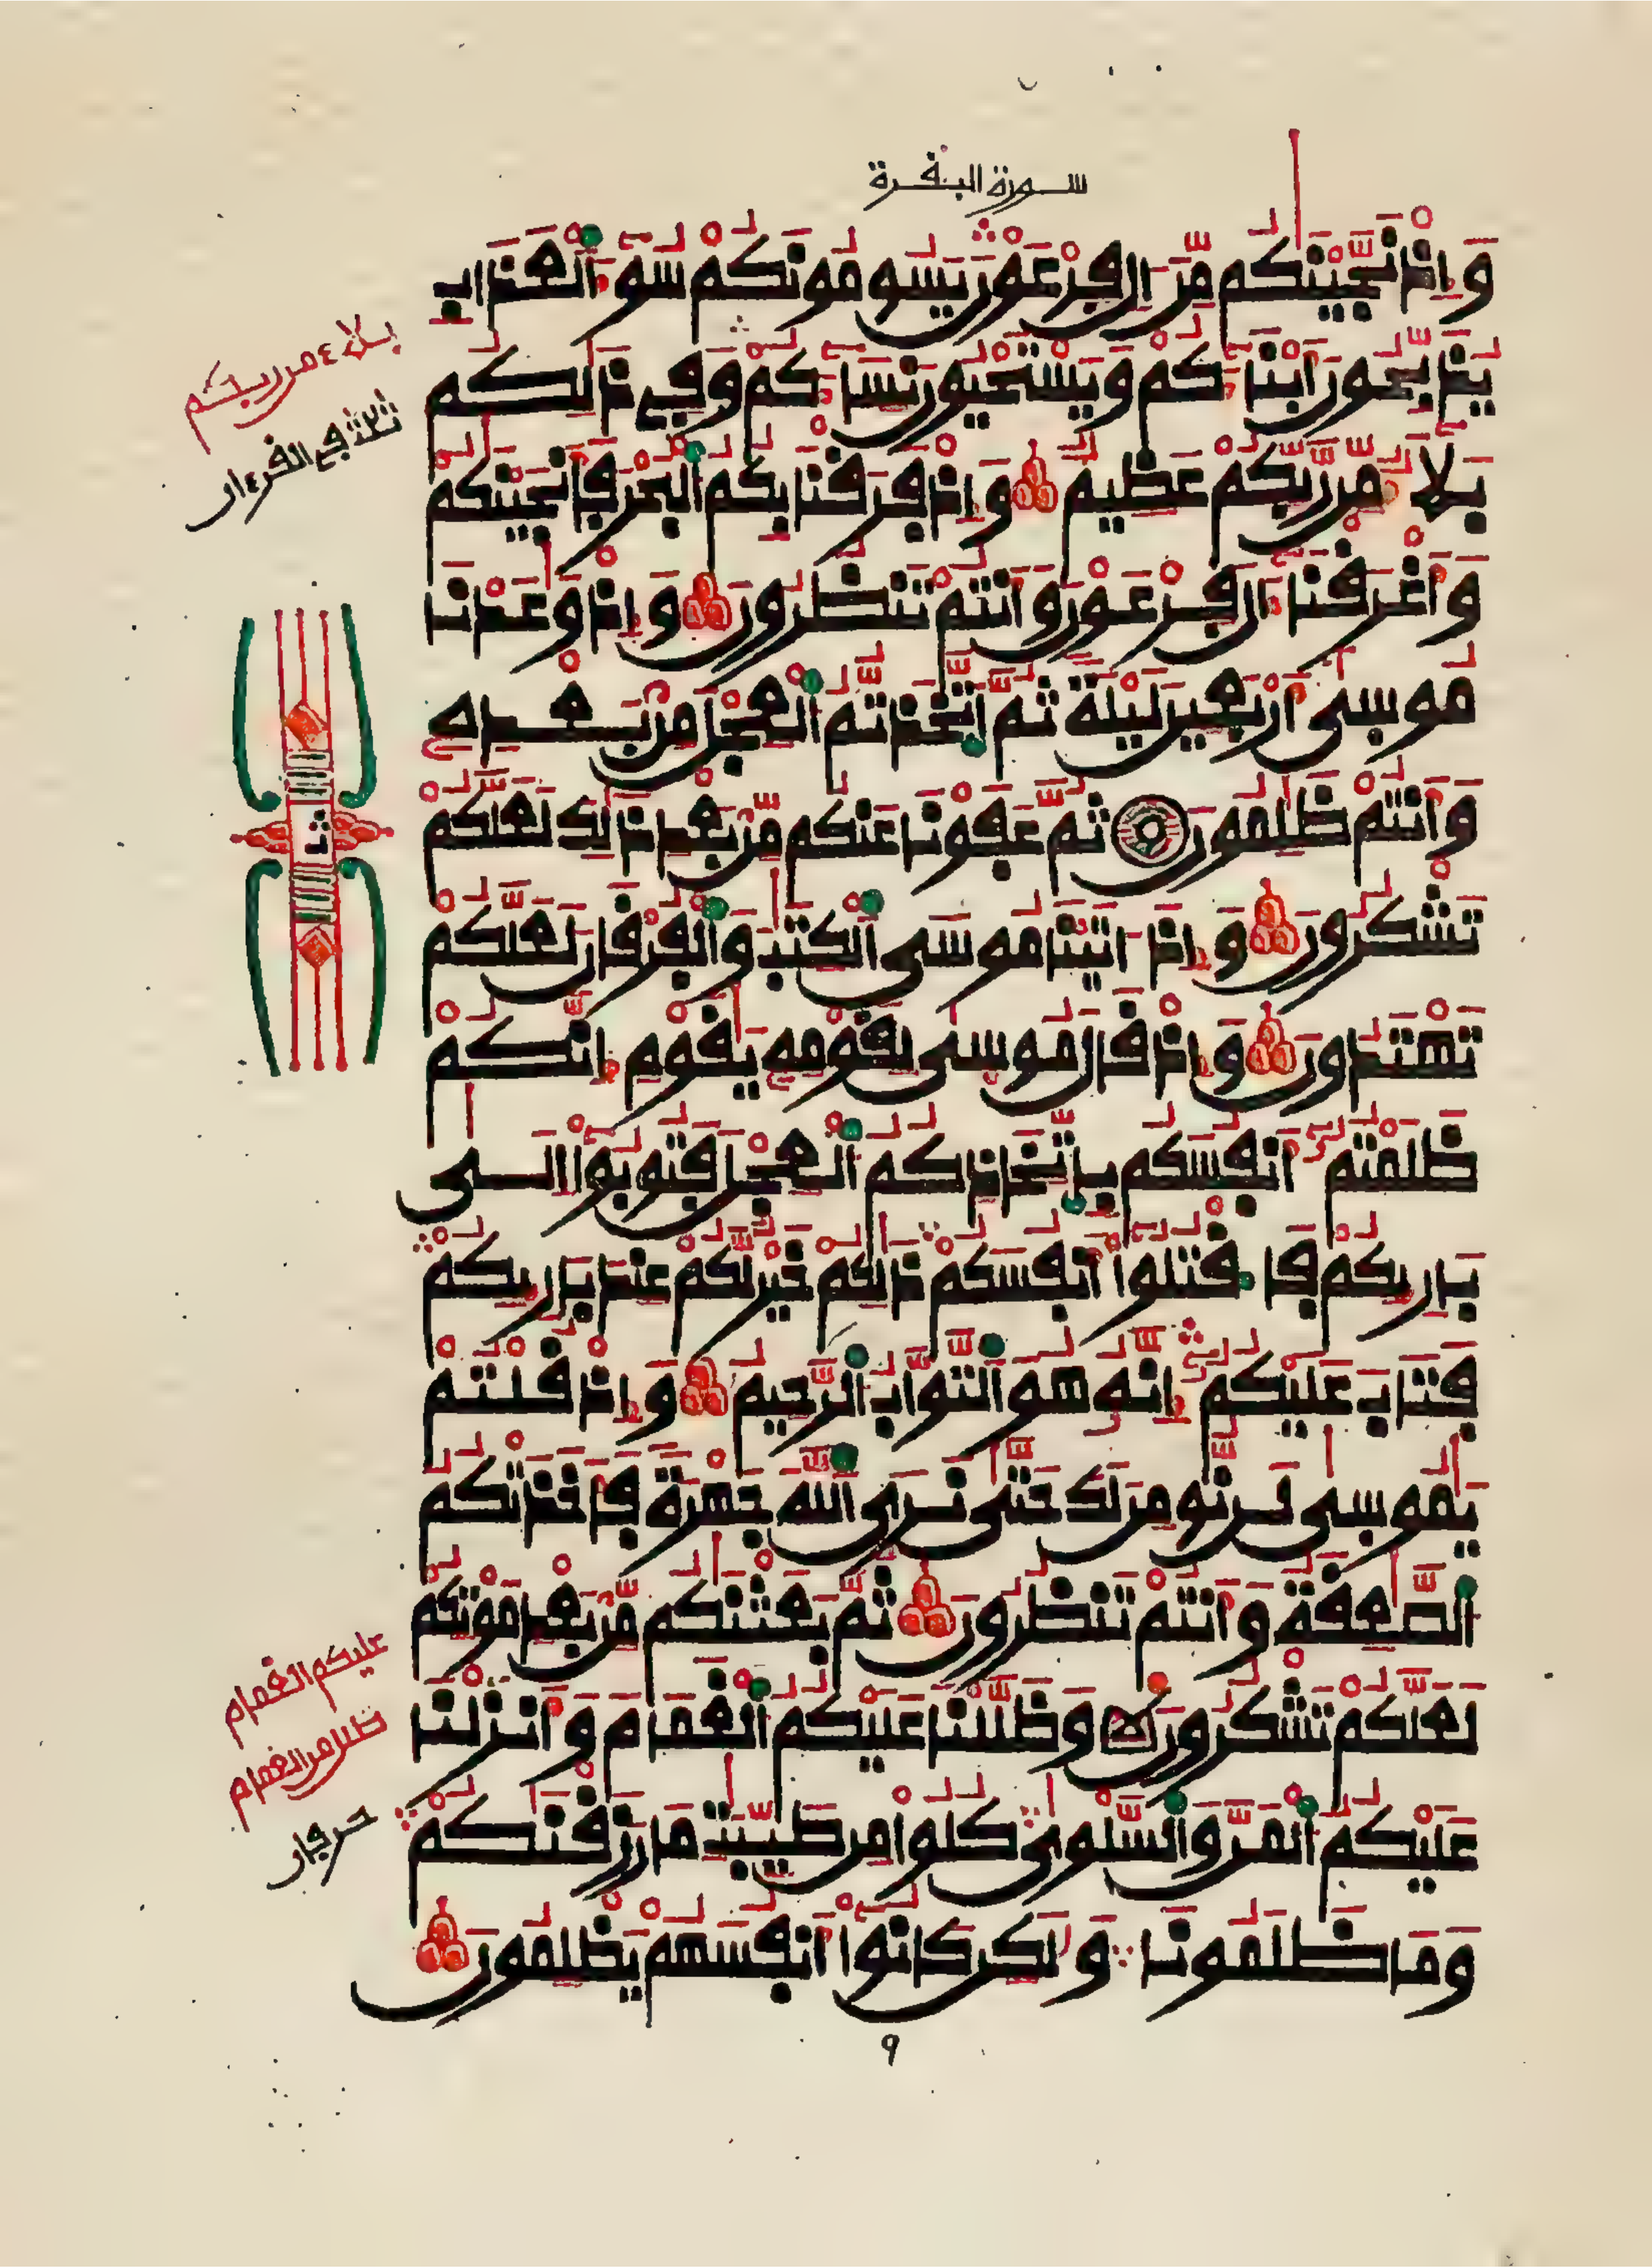 سورة البقرة
وَإِذْ نَجَّيْنَٰكُم مِّنَ ـَالِ فِرْعَوْنَ يَسُومُونَكُمْ سُوٓءَ ٱلْعَذَابِ
يُذَبِّحُونَ أَبْنَآءَكُمْ وَيَسْتَحْيُونَ نِسَآءَكُمْ وَفِے ذَٰلِكُم
بَلَآءٌ مِّن رَّبِّكُمْ عَظِيمٌ وَإِذْ فَرَقْنَا بِكُمُ ٱلْبَحْرَ فَأَنجَيْنَٰكُمْ
وَأَغْرَقْنَآ ءَالَ فِرْعَوْنَ وَأَنتُمْ تَنظُرُونَ وَإِذْ وَٰعَدْنَا
مُوسَىٰٓ أَرْبَعِينَ لَيْلَةً ثُمَّ ٱتَّخَذتُّمُ ٱلْعِجْلَ مِنۢ بَعْدِهِۦ
وَأَنتُمْ ظَٰلِمُونَ ثُمَّ عَفَوْنَا عَنكُم مِّنۢ بَعْدِ ذَٰلِكَ لَعَلَّكُمْ
تَشْكُرُونَ وَإِذَ ـاتَيْنَا مُوسَى ٱلْكِتَٰبَ وَٱلْفُرْقَانَ لَعَلَّكُمْ
تَهْتَدُونَ وَإِذْ قَالَ مُوسَىٰ لِقَوْمِهِۦ يَٰقَوْمِ إِنَّكُمْ
ظَلَمْتُمُۥٓ أَنفُسَكُم بِٱتِّخَاذِكُمُ ٱلْعِجْلَ فَتُوبُوٓا۟ إِلَىٰ
بَارِئِكُمْ فَٱقْتُلُوٓا۟ أَنفُسَكُمْ ذَٰلِكُمْ خَيْرٌ لَّكُمْ عِندَ بَارِئِكُمْ
فَتَابَ عَلَيْكُمُۥٓ إِنَّهُۥ هُوَ ٱلتَّوَّابُ ٱلرَّحِيمُ وَإِذْ قُلْتُمْ
يَٰمُوسَىٰ لَن نُّومِنَ لَكَ حَتَّىٰ نَرَى ٱللَّهَ جَهْرَةً فَأَخَذَتْكُمُ
ٱلصَّٰعِقَةُ وَأَنتُمْ تَنظُرُونَ ثُمَّ بَعَثْنَٰكُم مِّنۢ بَعْدِ مَوْتِكُمْ
لَعَلَّكُمْ تَشْكُرُونَ وَظَلَّلْنَا عَلَيْكُمُ ٱلْغَمَامَ وَأَنزَلْنَا
عَلَيْكُمُ ٱلْمَنَّ وَٱلسَّلْوَىٰ كُلُوا۟ مِن طَيِّبَٰتِ مَا رَزَقْنَٰكُمْ
وَمَا ظَلَمُونَا وَلَٰكِن كَانُوٓا۟ أَنفُسَهُمْ يَظْلِمُونَ
٩
بلاء من ربكم
ثلاثة في القرءان
ثمن
عليكم الغمام
ظلل من الغمام
حرفان